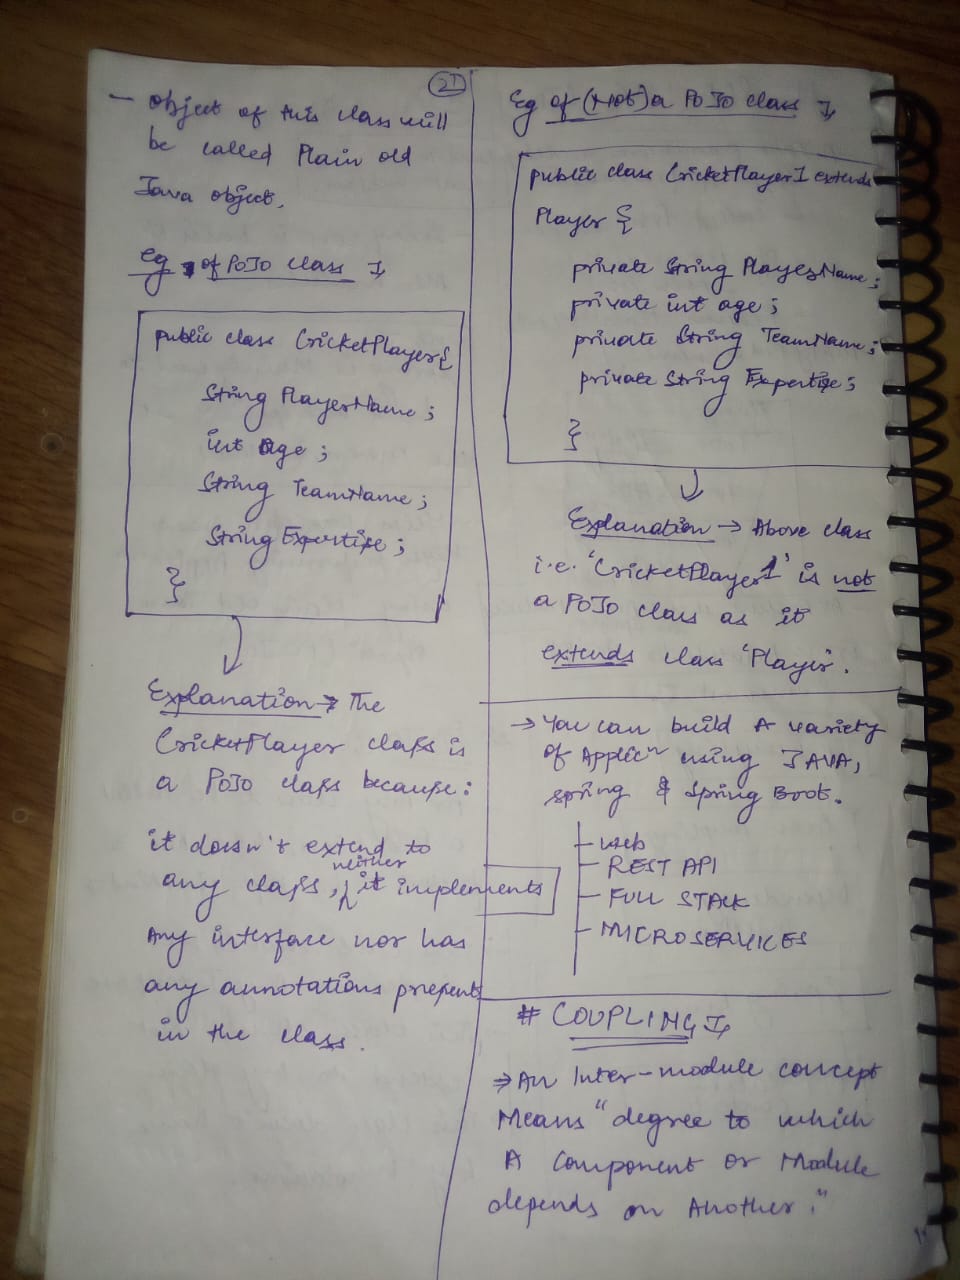 27
- Object of this class will
be called Plain old
Java object.
eg of POJO class
public class CricketPlayer {
String PlayerName ;
int Age ;
String TeamName ;
String Expertise ;
}
Explanation → The
CricketPlayer class is
a POJO class because :
it doesn't extend to
any class, neither it implements
Any interface nor has
any annotations presents
in the class.
Eg of (Not) a POJO class
public class CricketPlayer1 extends
Player {
private String PlayerName ;
private int age ;
private String TeamName ;
private String Expertise ;
}
Explanation → Above class
i.e. 'CricketPlayer1' is not
a POJO class as it
extends class 'Player'.
→ You can build A variety
of Applicn using JAVA,
spring & Spring Boot.
- Web
- REST API
- FULL STACK
- MICROSERVICES
# COUPLING
⇒ An Inter-module concept
Means "degree to which
A Component or Module
depends on Another."